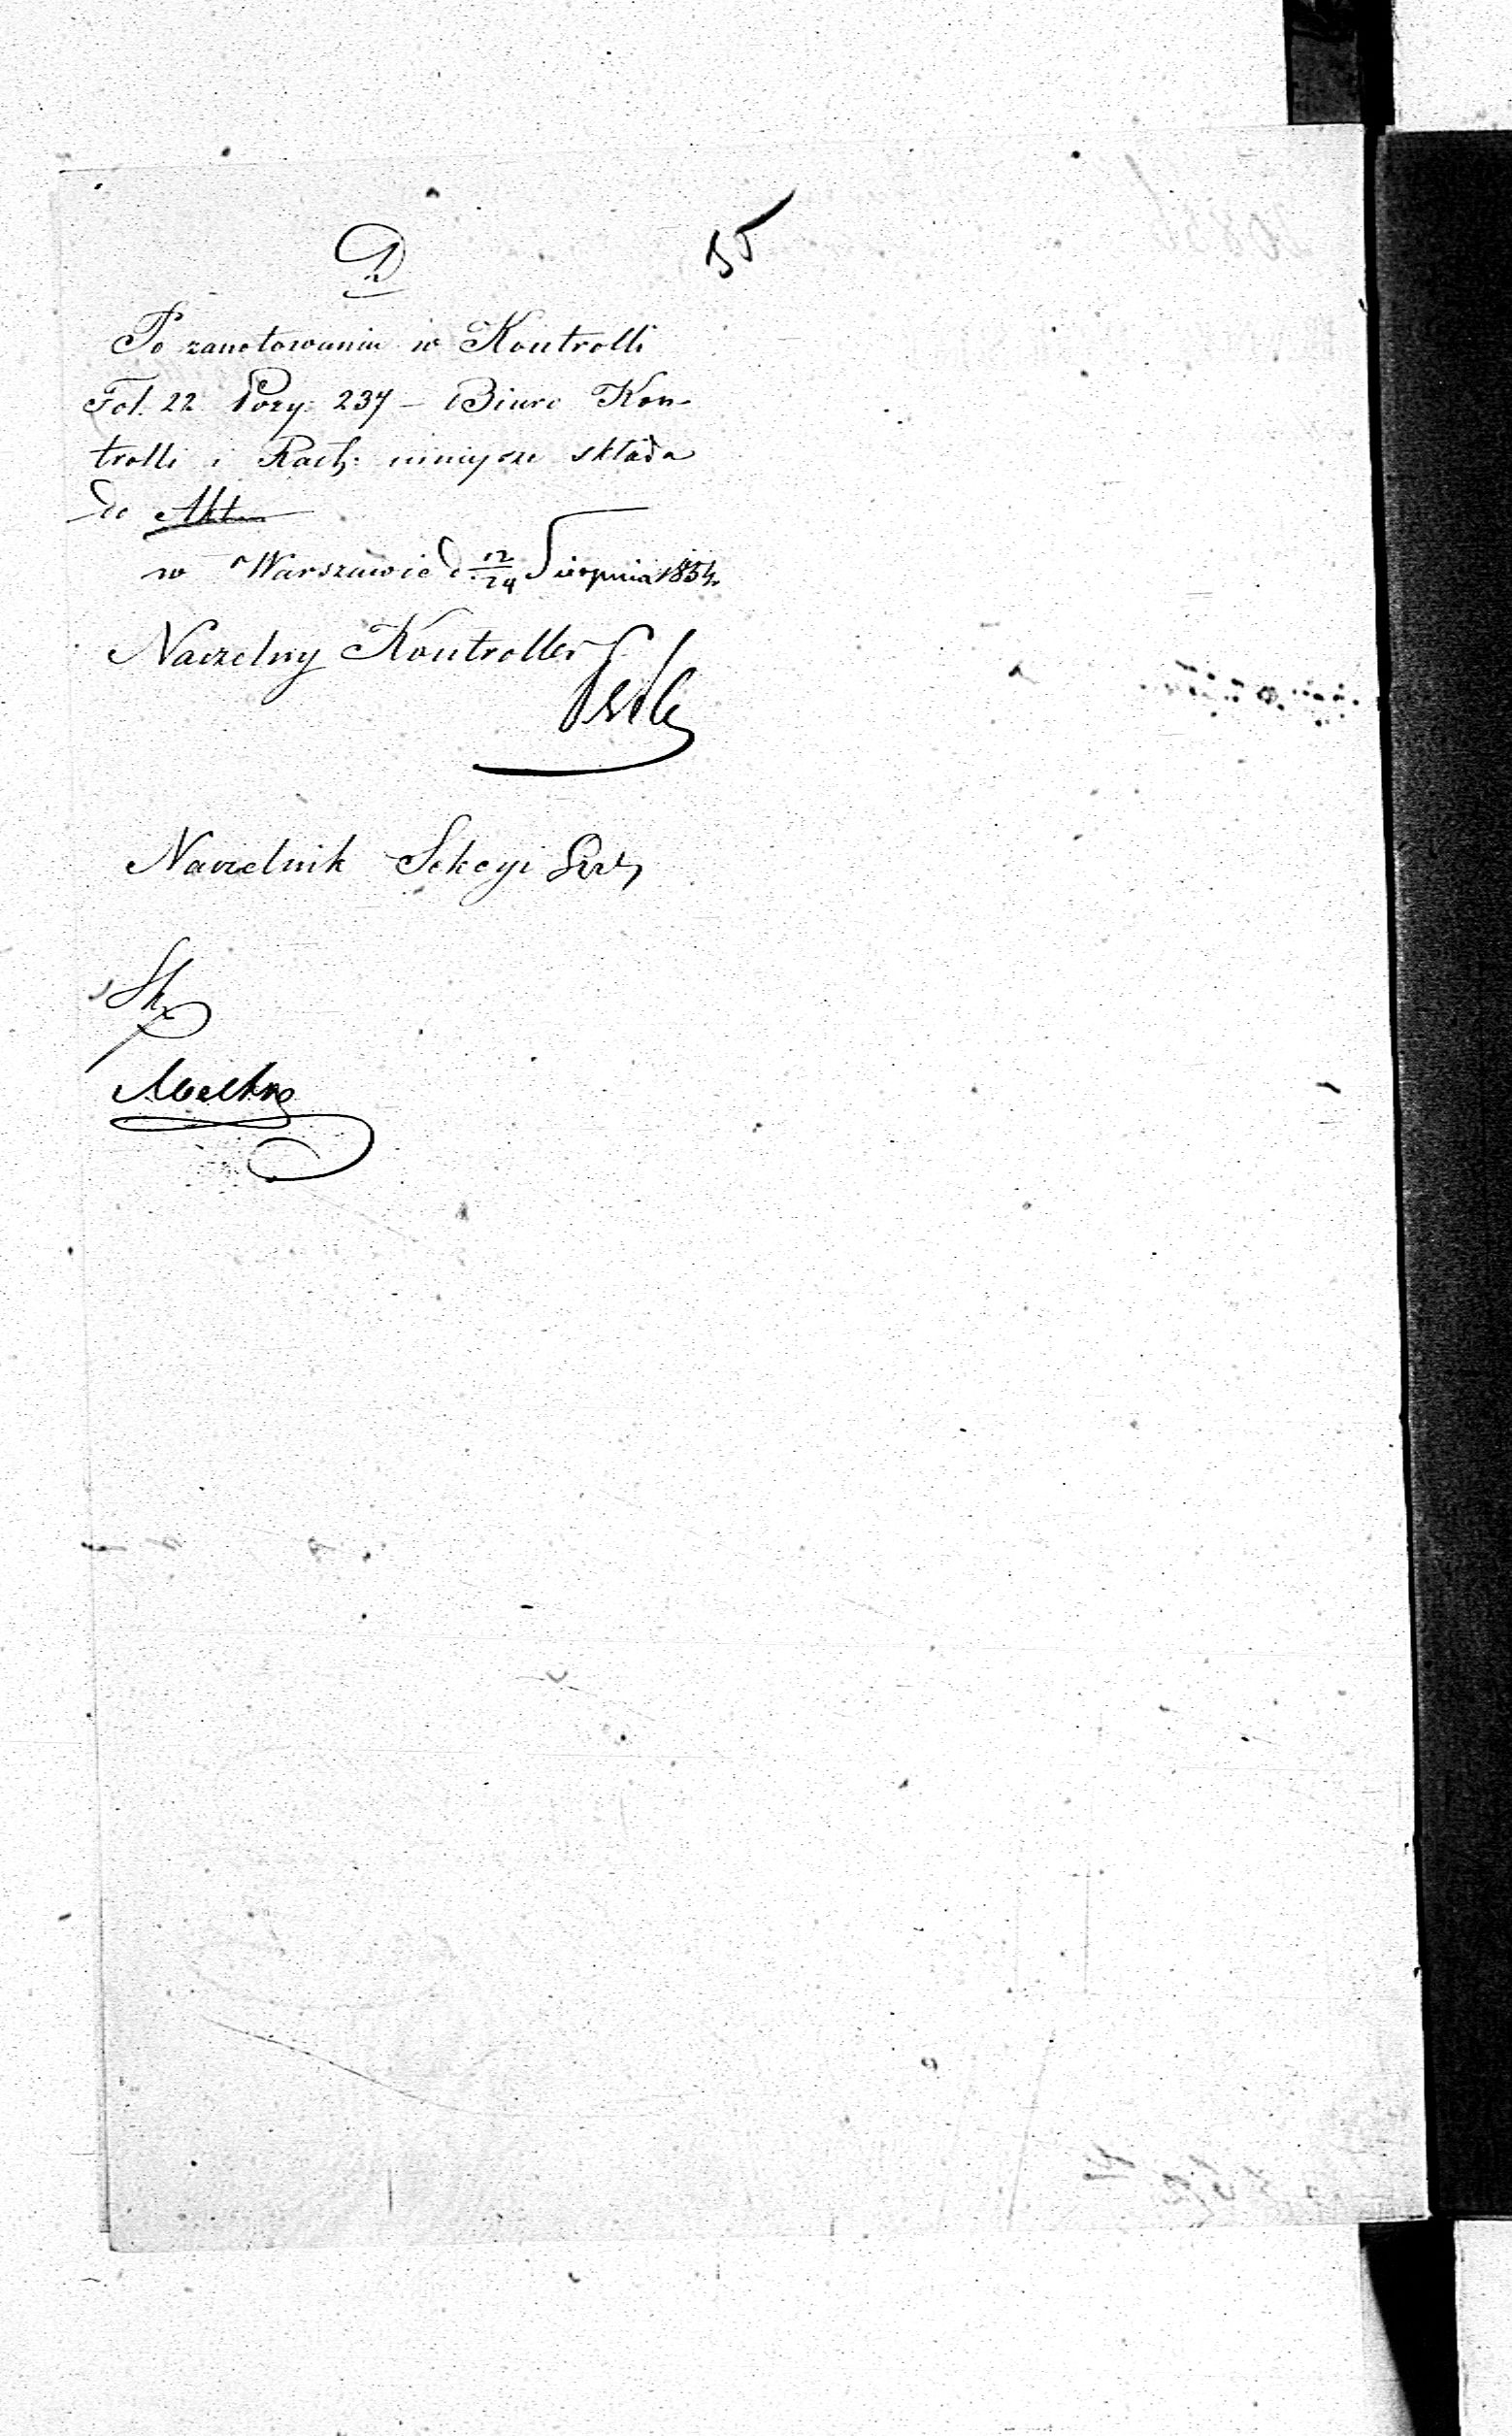 D
Po zanotowaniu w Kontrolli
Fol. 22 Pozy: 237 – Biuro Kon-
trolli i Rach: niniejsze składa
do Akt
w Warszawie d. 12/24 Sierpnia 1854.
Naczelny Kontroller
Naczelnik Sekcyi